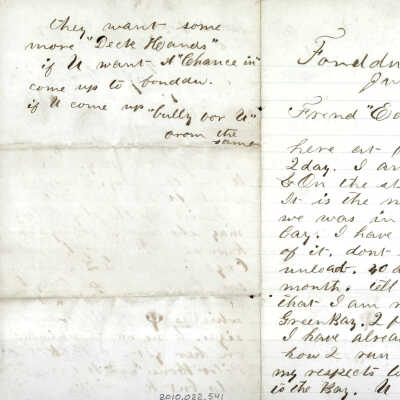 they want some
more "Deck Hands"
if U want A "Chance in"
come up to fonddu.
if U come up "bully for U"
from the
same
Fonddu
Frend "Ed
here at
2day. I am
&On the
It is the
we was in
bay. I have
of it. dont
unload. 40
month. tell
that I am
GreenBay. 2
I have alrea
how 2 run
my respects to
is the Bay. U
2010.022.541